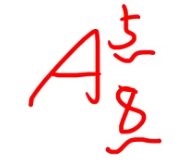 A⁵₈